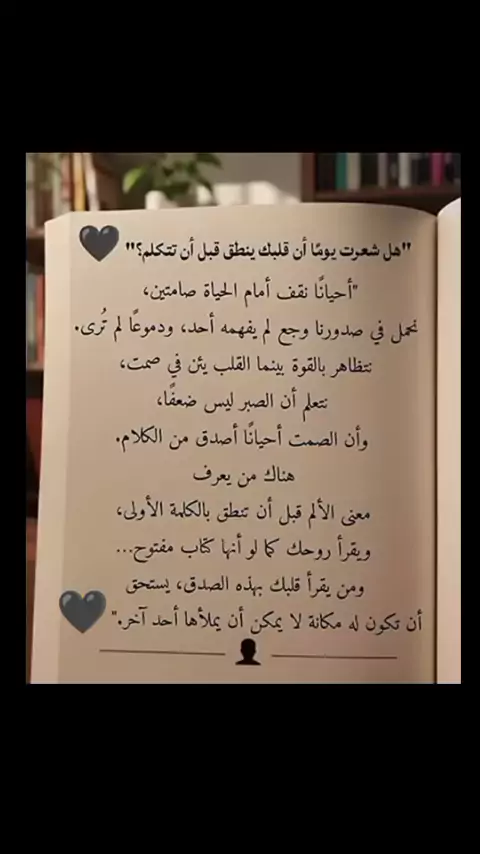 "هل شعرت يومًا أن قلبك ينطق قبل أن تتكلم؟"
"أحيانًا نقف أمام الحياة صامتين،
نحمل في صدورنا وجع لم يفهمه أحد، ودموعًا لم تُرى.
نتظاهر بالقوة بينما القلب يئن في صمت،
نتعلم أن الصبر ليس ضعفًا،
وأن الصمت أحيانًا أصدق من الكلام.
هناك من يعرف
معنى الألم قبل أن تنطق بالكلمة الأولى،
ويقرأ روحك كما لو أنها كتاب مفتوح...
ومن يقرأ قلبك بهذه الصدق، يستحق
أن تكون له مكانة لا يمكن أن يملأها أحد آخر."